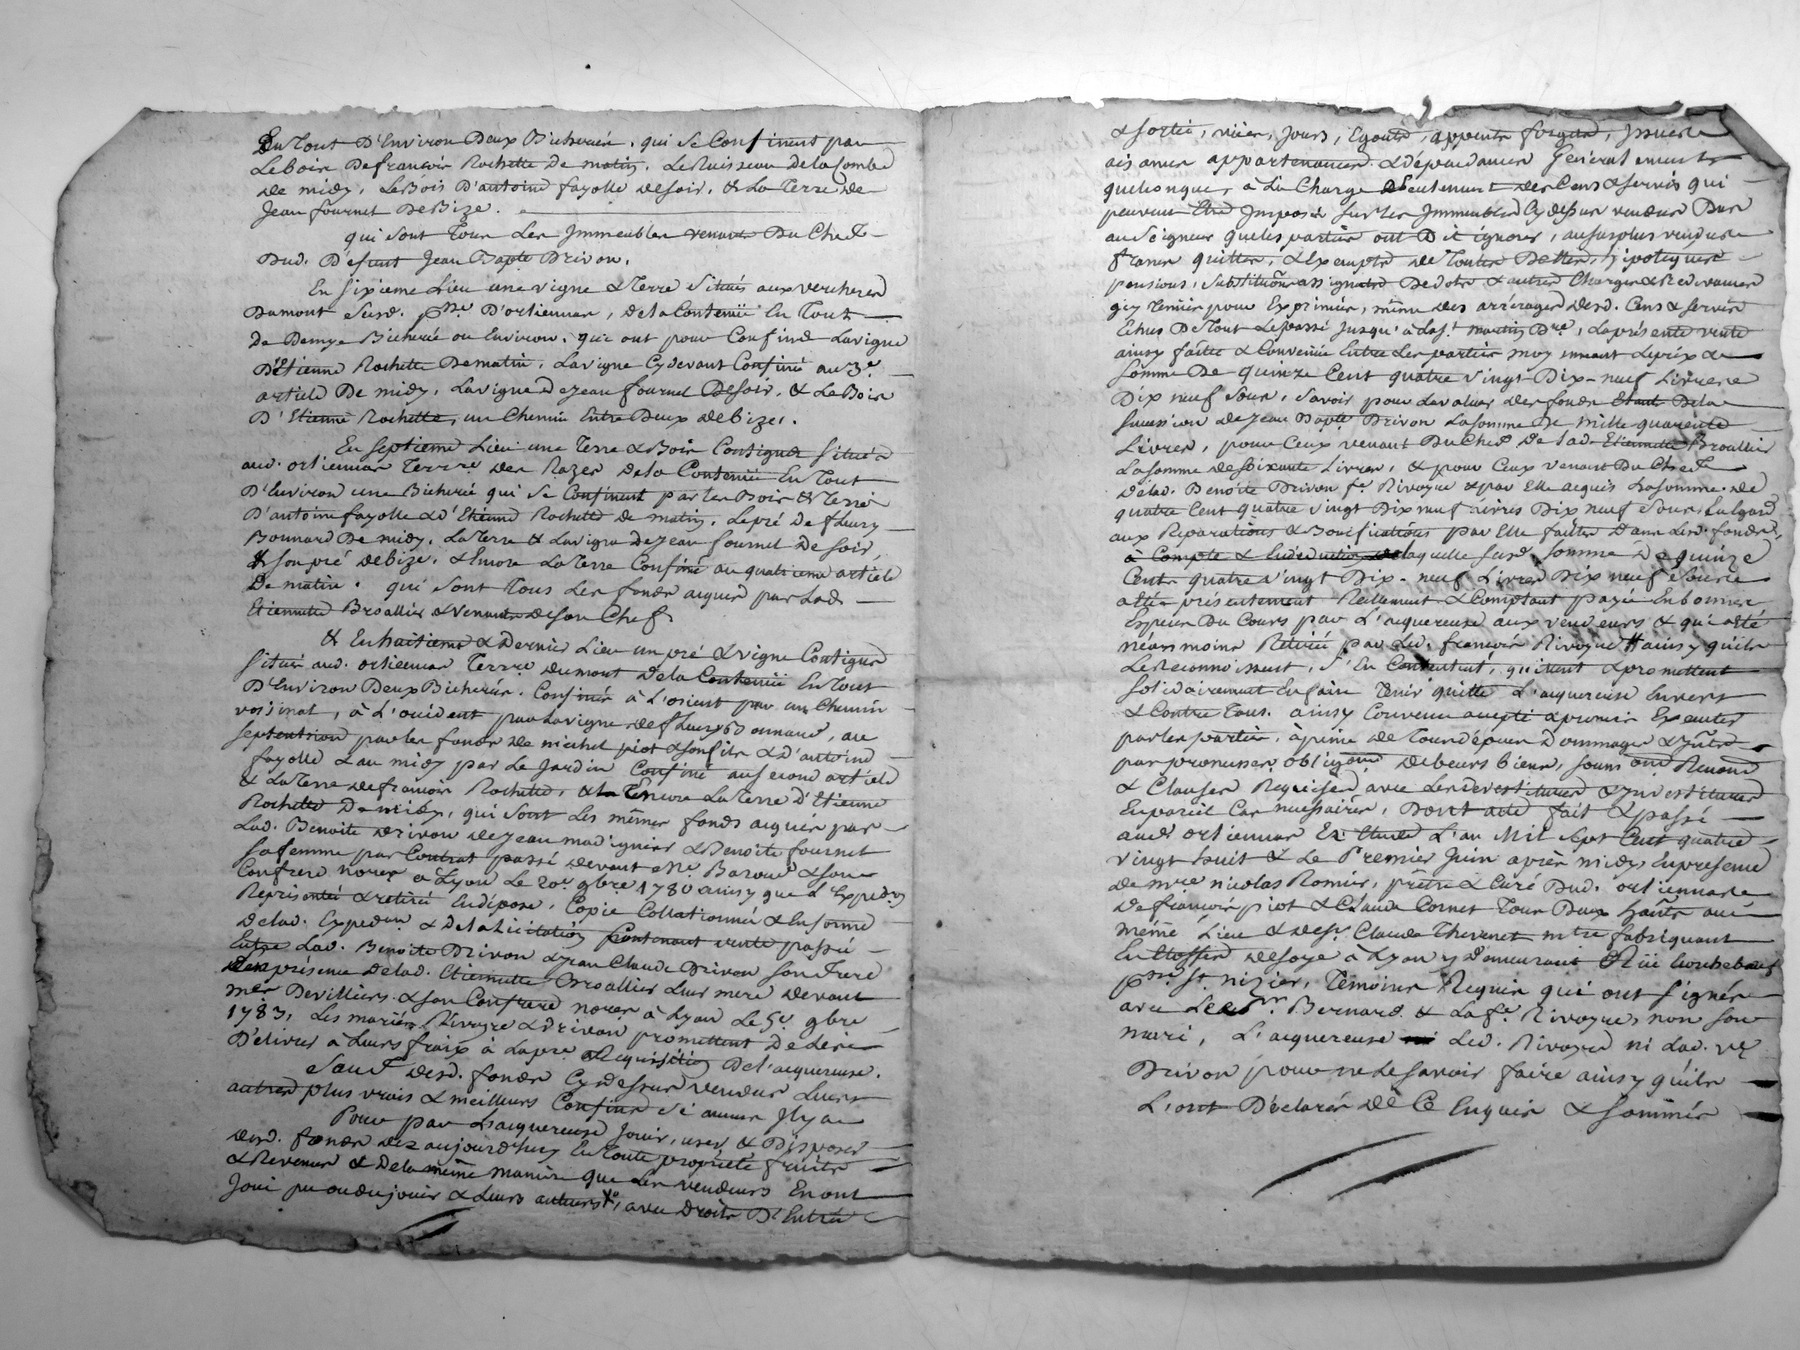 En Tout D'Environ Deux Bicherées, qui se Confinent par
Le bois De francois Rochette De matin, Le Ruisseau de la Combe
de midy, Le Bois D'antoine fayolle de soir, & La Terre de
Jean fournel De Bize.
qui sont Tous Les Immeubles venants Du Chef
Dud. Defunt Jean Bapte Drivon.
En sixieme Lieu une vigne & Terre Situés aux vercheres
Dumont susd. psse D'ortiennas, de la Contenüe En Tout
De Demye Bicherée ou Environ, qui ont pour Confins La vigne
D'Etienne Rochette De matin, La vigne Cydevant Confiné au 3e
article De midy, La vigne de Jean fournel De soir, & Le Bois
D'Etienne Rochette, un Chemin Entre Deux de bize.
En septieme Lieu une Terre & Bois Contigues Situés
aud. ortiennas Terrre des Razes de la Contenüe En Tout
D'Environ une Bicherée qui se Confinent par les Bois & Terre
D'antoine fayolle & d'Etienne Rochette de matin, Le pré De fleury
Bonnard De midy, La Terre & La vigne de Jean fournel De soir,
& son pré de bize, & Encore La Terre Confiné au quatrieme article
De matin. qui sont Tous Les fonds acquis par Lad.
Etiennette Broallier & venants de son Chef.
& En huitieme & Dernier Lieu un pré & vigne Contigus
situés aud. ortiennas Terrre dumont de la Contenüe En Tout
D'Environ Deux Bicherées, Confinés à L'orient par un Chemin
voisinal, à L'occident par La vigne de fleury Bonnard, au
septentrion par les fonds de michel piot & son fils & d'antoine
fayolle & au midy par Le Jardin Confiné au second article
& La Terre de francois Rochette, & Encore La Terre D'Etienne
Rochette De midy, qui sont Les mêmes fonds acquis par
Lad. Benoite Drivon de Jean madignier & Benoite fournel
sa femme par Contrat passé devant Me. Baroud & son
Confrere nores a Lyon Le 20e 9bre 1780 ainsy que L'Expedon
Representé & retiré En dépose, Copie Collationnée & En forme
de lad. Expedon & de la Licitation Contenant vente passé
Entre Lad. Benoite Drivon & Jean Claude Drivon son frere
En présence de lad. Etiennette Broallier Leur mere devant
mes Devilliers & son Confrere nores à Lyon Le 5e 9bre
1783, Les mariés Rivoyre & Drivon promettent De Les
Délivrer à Leurs fraix à La pre Requisition De l'acquereuse.
Sauf desd. fonds Cy dessus vendus Leurs
autres plus vrais & meilleurs Confins si aucuns Il y a
Pour par L'acquereuse Jouir, user & Disposer
desd. fonds dez aujourd'huy En Toute propriété fruits
& Revenus & De la même maniere que Les vendeurs En ont
Joui pu ou du jouir & Leurs auteurs, avec Droits D'Entrée
& sortie, vües, Jours, Egouts, appents forgets,
aisances appartenances & dépendances Generalement
quelconques à La Charge seulement des Cens & servis qui
peuvent Etre Imposés sur les Immeubles Cy dessus vendus Dus
au Seigneur que les parties ont Dit ignorer, au surplus vendus
francs quittes, & Exempts de Toutes Dettes, hipoteques
pensions, substitutions Dedots & autres Charges & Redevances
même des arrérages desd. Cens & servis
Echus De Tout Le passé Jusqu'à La St martin Dre, La présente vente
ainsy faitte & Convenüe Entre Les parties moyennant Le prix &
somme De quinze Cent quatre vingt Dix-neuf Livres
Dix neuf sous, savoir pour La valeur des fonds De la
succession de Jean Bapte Drivon La somme De mille quarente
Livres, pour Ceux venant Du Chef De Lad. Etiennette Broallier
La somme de soixante Livres, & pour Ceux venant Du Chef
De lad. Benoite Drivon fe Rivoyre & par Elle acquis La somme de
quatre Cent quatre vingt Dix neuf Livres Dix neuf sous, Eu Egard
aux Reparations & Bonifications par Elle faittes Dans Lesd. fonds,
à Compte & En deduction de laquelle susd. somme De quinze
Cents quatre vingt Dix-neuf Livres Dix neuf sous
a Eté présentement Réellement & Comptant payée En bonnes
Espèces Du Cours par L'acquereuse aux vendeurs & qui a été
néanmoins Retirée par Led. francois Rivoyre & ainsy qu'ils
Le Reconnoissent, s'En Contentent, quittent & promettent
solidairement En faire Tenir quitte L'acquereuse Envers
& Contre Tous. ainsy Convenu accepté & promis Executer
par les parties, à peine de Tous dépens Dommages & Intts
par promesses obligaons de leurs biens, soumons Renonons
& Clauses Requises avec Les devestitures & Investitures
En pareil Cas necessaires, Dont acte fait & passé
aud. ortiennas En Etude L'an Mil sept Cent quatre
vingt huit & Le Premier Juin après midy En presence
de mre nicolas Romier, prêtre & Curé Dud. ortiennas
de francois piot & Claude Cornet Tous Deux habts aud.
même Lieu & de sr. Claude Thevenet mtre fabriquant
En Etoffes de soye à Lyon y Demeurant Rüe
psse St. nizier, Témoins Requis qui ont signé
avec Led. sr. Bernard & La fe. Rivoyre, non son
mari, L'acquereuse Led. Rivoyre ni Lad. ve
Drivon pour ne Le savoir faire ainsy qu'ils
L'ont Déclarés De Ce Enquis & sommés